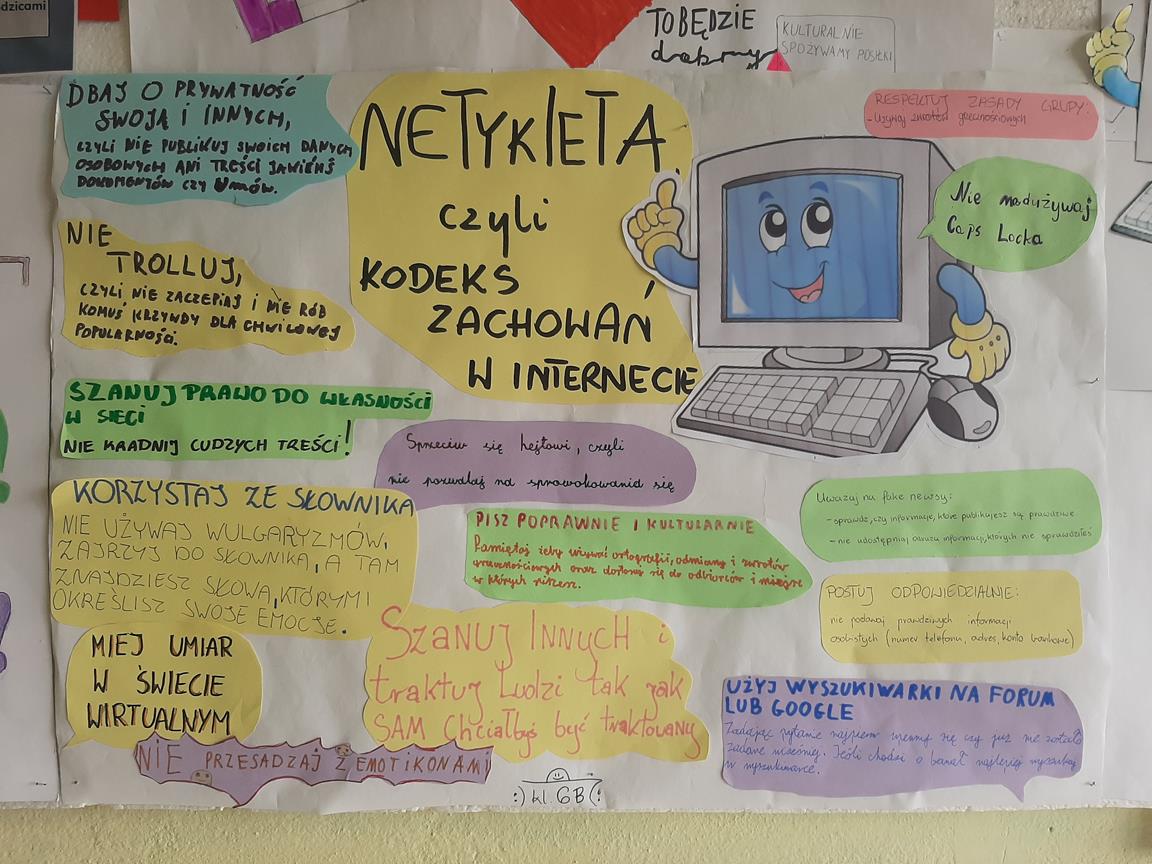 dzicami
TO BĘDZIE
dobrny
KULTURALNIE
SPOŻYWAMY POSIŁKI
DBAJ O PRYWATNOŚĆ
SWOJĄ I INNYCH,
CZYLI NIE PUBLIKUJ SWOICH DANYCH
OSOBOWYCH ANI TREŚCI JAKICHŚ
DOKUMENTÓW CZY UMÓW.
NETYKIETA,
czyli
KODEKS
ZACHOWAŃ
W INTERNECIE
RESPEKTUJ ZASADY GRUPY:
-Używaj zwrotów grzecznościowych
Nie nadużywaj
Caps Locka
NIE
TROLLUJ,
CZYLI NIE ZACZEPIAJ I NIE RÓB
KOMUŚ KRZYWDY DLA CHWILOWEJ
POPULARNOŚCI.
SZANUJ PRAWO DO WŁASNOŚCI
W SIECI
NIE KRADNIJ CUDZYCH TREŚCI!
Sprzeciw się hejtowi, czyli
nie pozwalaj na sprowokowanie się
KORZYSTAJ ZE SŁOWNIKA
NIE UŻYWAJ WULGARYZMÓW,
ZAJRZYJ DO SŁOWNIKA, A TAM
ZNAJDZIESZ SŁOWA, KTÓRYMI
OKREŚLISZ SWOJE EMOCJE.
PISZ POPRAWNIE I KULTURALNIE
Pamiętaj żeby używać ortografii, odmiany i zwrotów
grzecznościowych oraz dostosuj się do odbiorców i miejsc
w których piszesz.
Uważaj na fake newsy:
-sprawdź, czy informacje, które publikujesz są prawdziwe
-nie udostępniaj obrazu informacji, których nie sprawdziłeś
POSTUJ ODPOWIEDZIALNIE:
nie podawaj prawdziwych informacji
osobistych (numer telefonu, adres, konto bankowe)
MIEJ UMIAR
W ŚWIECIE
WIRTUALNYM
Szanuj INNYCH i
traktuj Ludzi tak jak
SAM Chciałbyś być traktowany
UŻYJ WYSZUKIWARKI NA FORUM
LUB GOOGLE
Zadając pytanie najpierw upewnij się czy już nie zostało
zadane wcześniej. Jeśli chodzi o banał najlepiej wyszukaj
w wyszukiwarce.
NIE PRZESADZAJ Z EMOTIKONAMI
:) kl. 6B (: